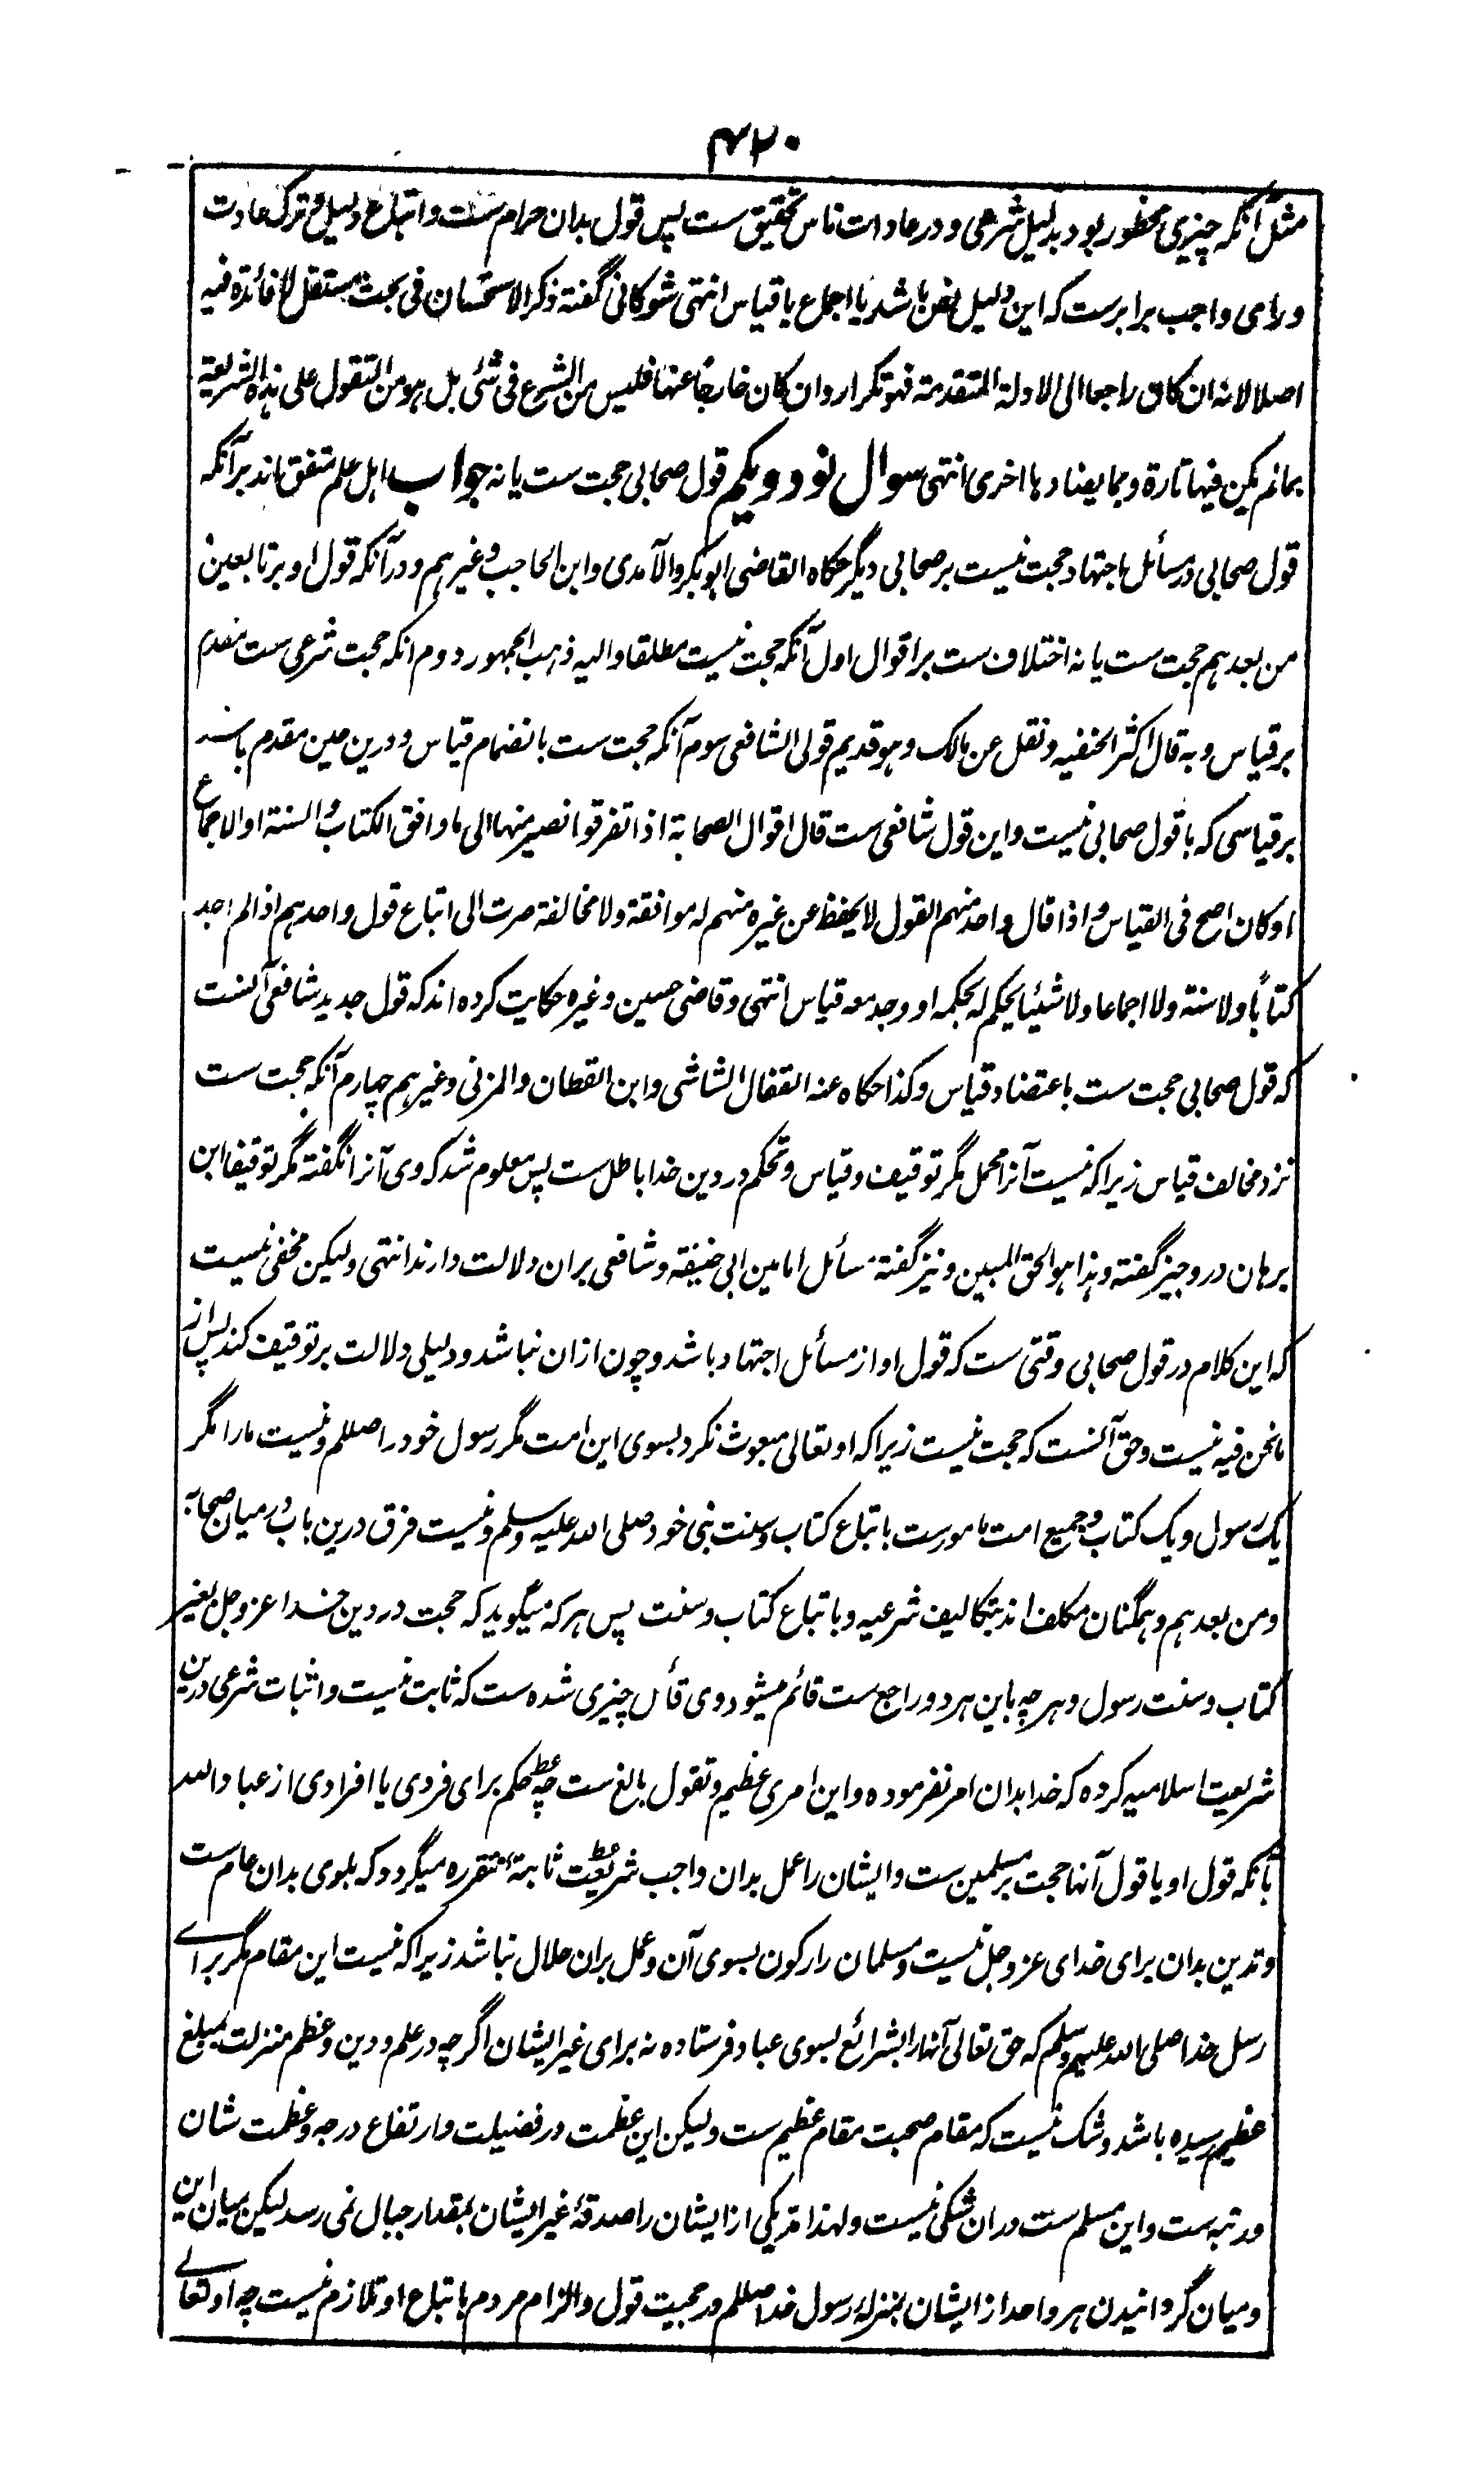 ۴۲۰
مثل آنکه چیزی محظور بود بدلیل شرعی و در عادات ناس تحقیق ست پس قول بدان حرام ست و اتباع دلیل و ترک عادت
و رای واجب برابرست که این دلیل نص باشد یا اجماع یا قیاس انتهی شوکانی گفته ذکر الاستحسان فی بحث مستقل لا فائدة فیه
اصلا لانه ان کان راجعا الی الادلة المتقدمة فهو تکرار وان کان خارجًا عنها فلیس من الشرع فی شئ بل هو من التقول علی هذه الشریعة
بمالم یکن فیها تارة و بما یضادها اخری انتهی سوال نود و یکم قول صحابی حجت ست یا نه جواب اهل علم متفق اند بر آنکه
قول صحابی در مسائل اجتهاد حجت نیست بر صحابی دیگر حکاه القاضی ابوبکر والآمدی وابن الحاجب وغیرهم و در آنکه قول او بر تابعین
من بعدهم حجت ست یا نه اختلاف ست بر اقوال اول آنکه حجت نیست مطلقا والیه ذهب الجمهور دوم آنکه حجت شرعی ست مقدم
بر قیاس و به قال اکثر الحنفیه و نقل عن مالک و هو قدیم قولی الشافعی سوم آنکه حجت ست بانضمام قیاس و درین حین مقدم باشد
بر قیاسی که با قول صحابی نیست و این قول شافعی ست قال اقوال الصحابة اذا تفرقوا نصیر منها الی ما وافق الکتاب والسنة او الاجماع
او کان اصح فی القیاس و اذا قال واحد منهم القول لا یحفظ عن غیره منهم له موافقة ولا مخالفة صرت الی اتباع قول واحدهم اذا لم اجد
کتابًا ولا سنة ولا اجماعا ولا شیئا یحکم له بحکمه او وجد معه قیاس انتهی و قاضی حسین و غیره حکایت کرده اند که قول جدید شافعی آنست
که قول صحابی حجت ست باعتضاد قیاس و کذا حکاه عنه القفال الشاشی وابن القطان والمزنی وغیرهم چهارم آنکه حجت ست
نزد مخالف قیاس زیرا که نیست آنرا محمل مگر توقیف و قیاس و تحکم در دین خدا باطل ست پس معلوم شد که وی آنرا نگفته مگر توقیفا ابن
برهان در وجیز گفته و هذا هو الحق المبین و نیز گفته مسائل امامین ابی حنیفة و شافعی بران دلالت دارند انتهی ولیکن مخفی نیست
که این کلام در قول صحابی وقتی ست که قول او از مسائل اجتهاد باشد و چون ازان نباشد و دلیلی دلالت بر توقیف کند پس از
مانحن فیه نیست و حق آنست که حجت نیست زیرا که او تعالی مبعوث نکرد بسوی این امت مگر رسول خود را صللم و نیست ما را مگر
یک رسول و یک کتاب و جمیع امت مامورست باتباع کتاب و سنت نبی خود صلی الله علیه وسلم و نیست فرق درین باب در میان صحابه
و من بعدهم و همگنان مکلف اند بتکالیف شرعیه و باتباع کتاب و سنت پس هر که میگوید که حجت در دین خدا عز وجل بغیر
کتاب و سنت رسول و هرچه باین هر دو راجع ست قائم میشود وی قائل چیزی شده ست که ثابت نیست و اثبات شرعی درین
شریعت اسلامیه کرده که خدا بدان امر نفرموده و این امری عظیم و تقول بالغ ست چه حکم برای فردی یا افرادی از عباد الله
بآنکه قول او یا قول آنها حجت بر مسلمین ست و ایشان را عمل بدان واجب شریعت ثابتهٔ متقرره میگردد که بلوی بدان عام ست
و تدین بدان برای خدای عز وجل نیست و مسلمان را رکون بسوی آن و عمل بران حلال نباشد زیرا که نیست این مقام مگر برای
رسل خدا صلی الله علیهم وسلم که حق تعالی آنها را بشرائع بسوی عباد فرستاده نه برای غیر ایشان اگرچه در علم و دین و عظم منزلت بمبلغ
عظیم رسیده باشد و شک نیست که مقام صحبت مقام عظیم ست ولیکن این عظمت در فضیلت و ارتفاع درجه و عظمت شان
و رتبه ست و این مسلم ست دران شکی نیست و لهذا مد یکی از ایشان را صدقهٔ غیر ایشان بمقدار جبال نمی رسد لیکن میان این
و میان گردانیدن هر واحد از ایشان بمنزلهٔ رسول خدا صللم در حجیت قول و الزام مردم باتباع او تلازم نیست چه او تعالی